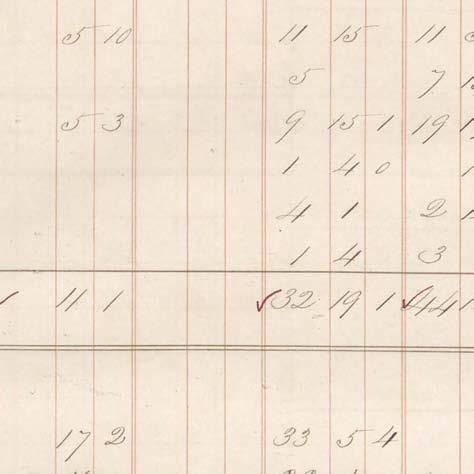 5 10 11 15 11
5 7
5 3 9 15 1 19
1 4 0
4 1 2
1 4 3
✓ 11 1 ✓ 32 19 1 ✓ 44
17 2 33 5 4